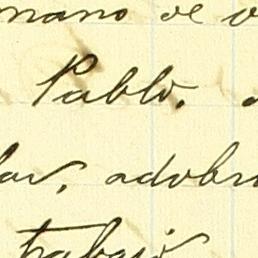 mano de
Pablo.
lar, adobr
trabajó